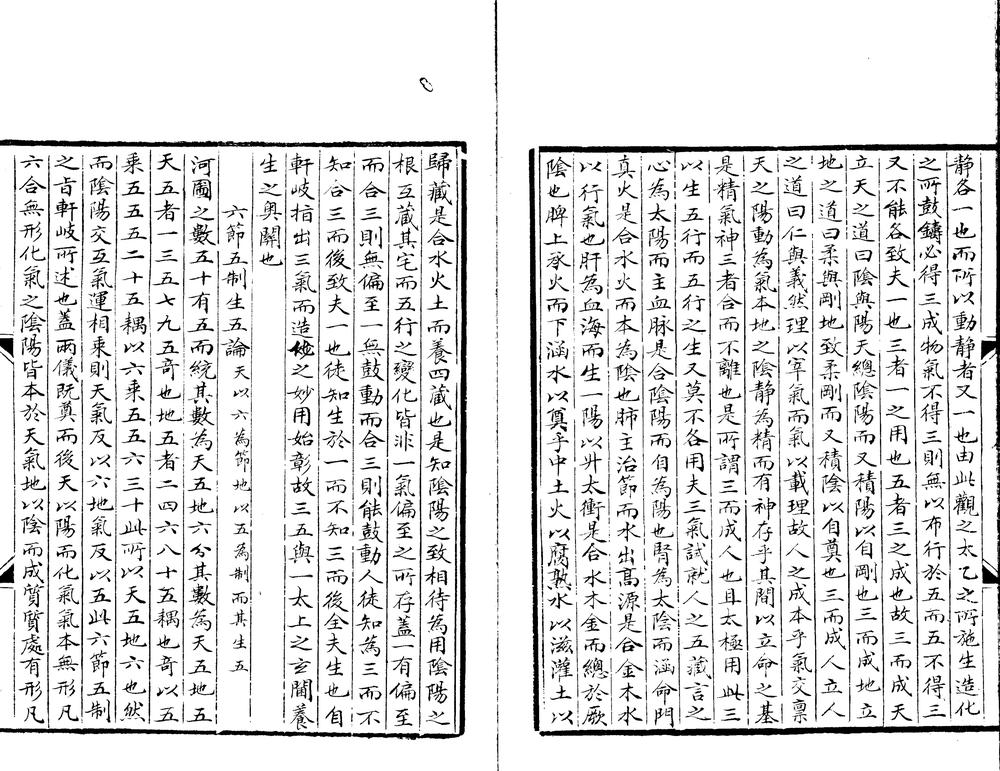 靜各一也而所以動靜者又一也由此觀之太乙之所施生造化
之所鼓鑄必得三成物氣不得三則無以布行於五而五不得三
又不能各致夫一也三者一之用也五者三之成也故三而成天
立天之道曰陰與陽天總陰陽而又積陽以自剛也三而成地立
地之道曰柔與剛地致柔剛而又積陰以自奠也三而成人立人
之道曰仁與義然理以宰氣而氣以載理故人之成本乎氣交稟
天之陽動為氣本地之陰靜為精而有神存乎其間以立命之基
是精氣神三者合而不離也是所謂三而成人也且太極用此三
以生五行而五行之生又莫不各用夫三氣試就人之五藏言之
心為太陽而主血脉是合陰陽而自為陽也腎為太陰而涵命門
真火是合水火而本為陰也肺主治節而水出髙源是合金木水
以行氣也肝為血海而生一陽以升太衝是合水木金而總於厥
陰也脾上承火而下涵水以奠乎中土火以腐熟水以滋灌土以
歸藏是合水火土而養四藏也是知陰陽之致相待為用陰陽之
根互藏其宅而五行之變化皆非一氣偏至之所存蓋一有偏至
而合三則無偏至一無鼓動而合三則能鼓動人徒知為三而不
知合三而後致夫一也徒知生於一而不知三而後全夫生也自
軒岐指出三氣而造化之妙用始彰故三五與一太上之玄關養
生之奥關也
六節五制生五論天以六為節地以五為制而其生五
河圖之數五十有五而統其數為天五地六分其數為天五地五
天五者一三五七九五竒也地五者二四六八十五耦也竒以五
乘五五五二十五耦以六乘五五六三十此所以天五地六也然
而陰陽交互氣運相乘則天氣反以六地氣反以五此六節五制
之㫖軒岐所述也蓋兩儀既奠而後天以陽而化氣氣本無形凡
六合無形化氣之陰陽皆本於天氣地以陰而成質質處有形凡